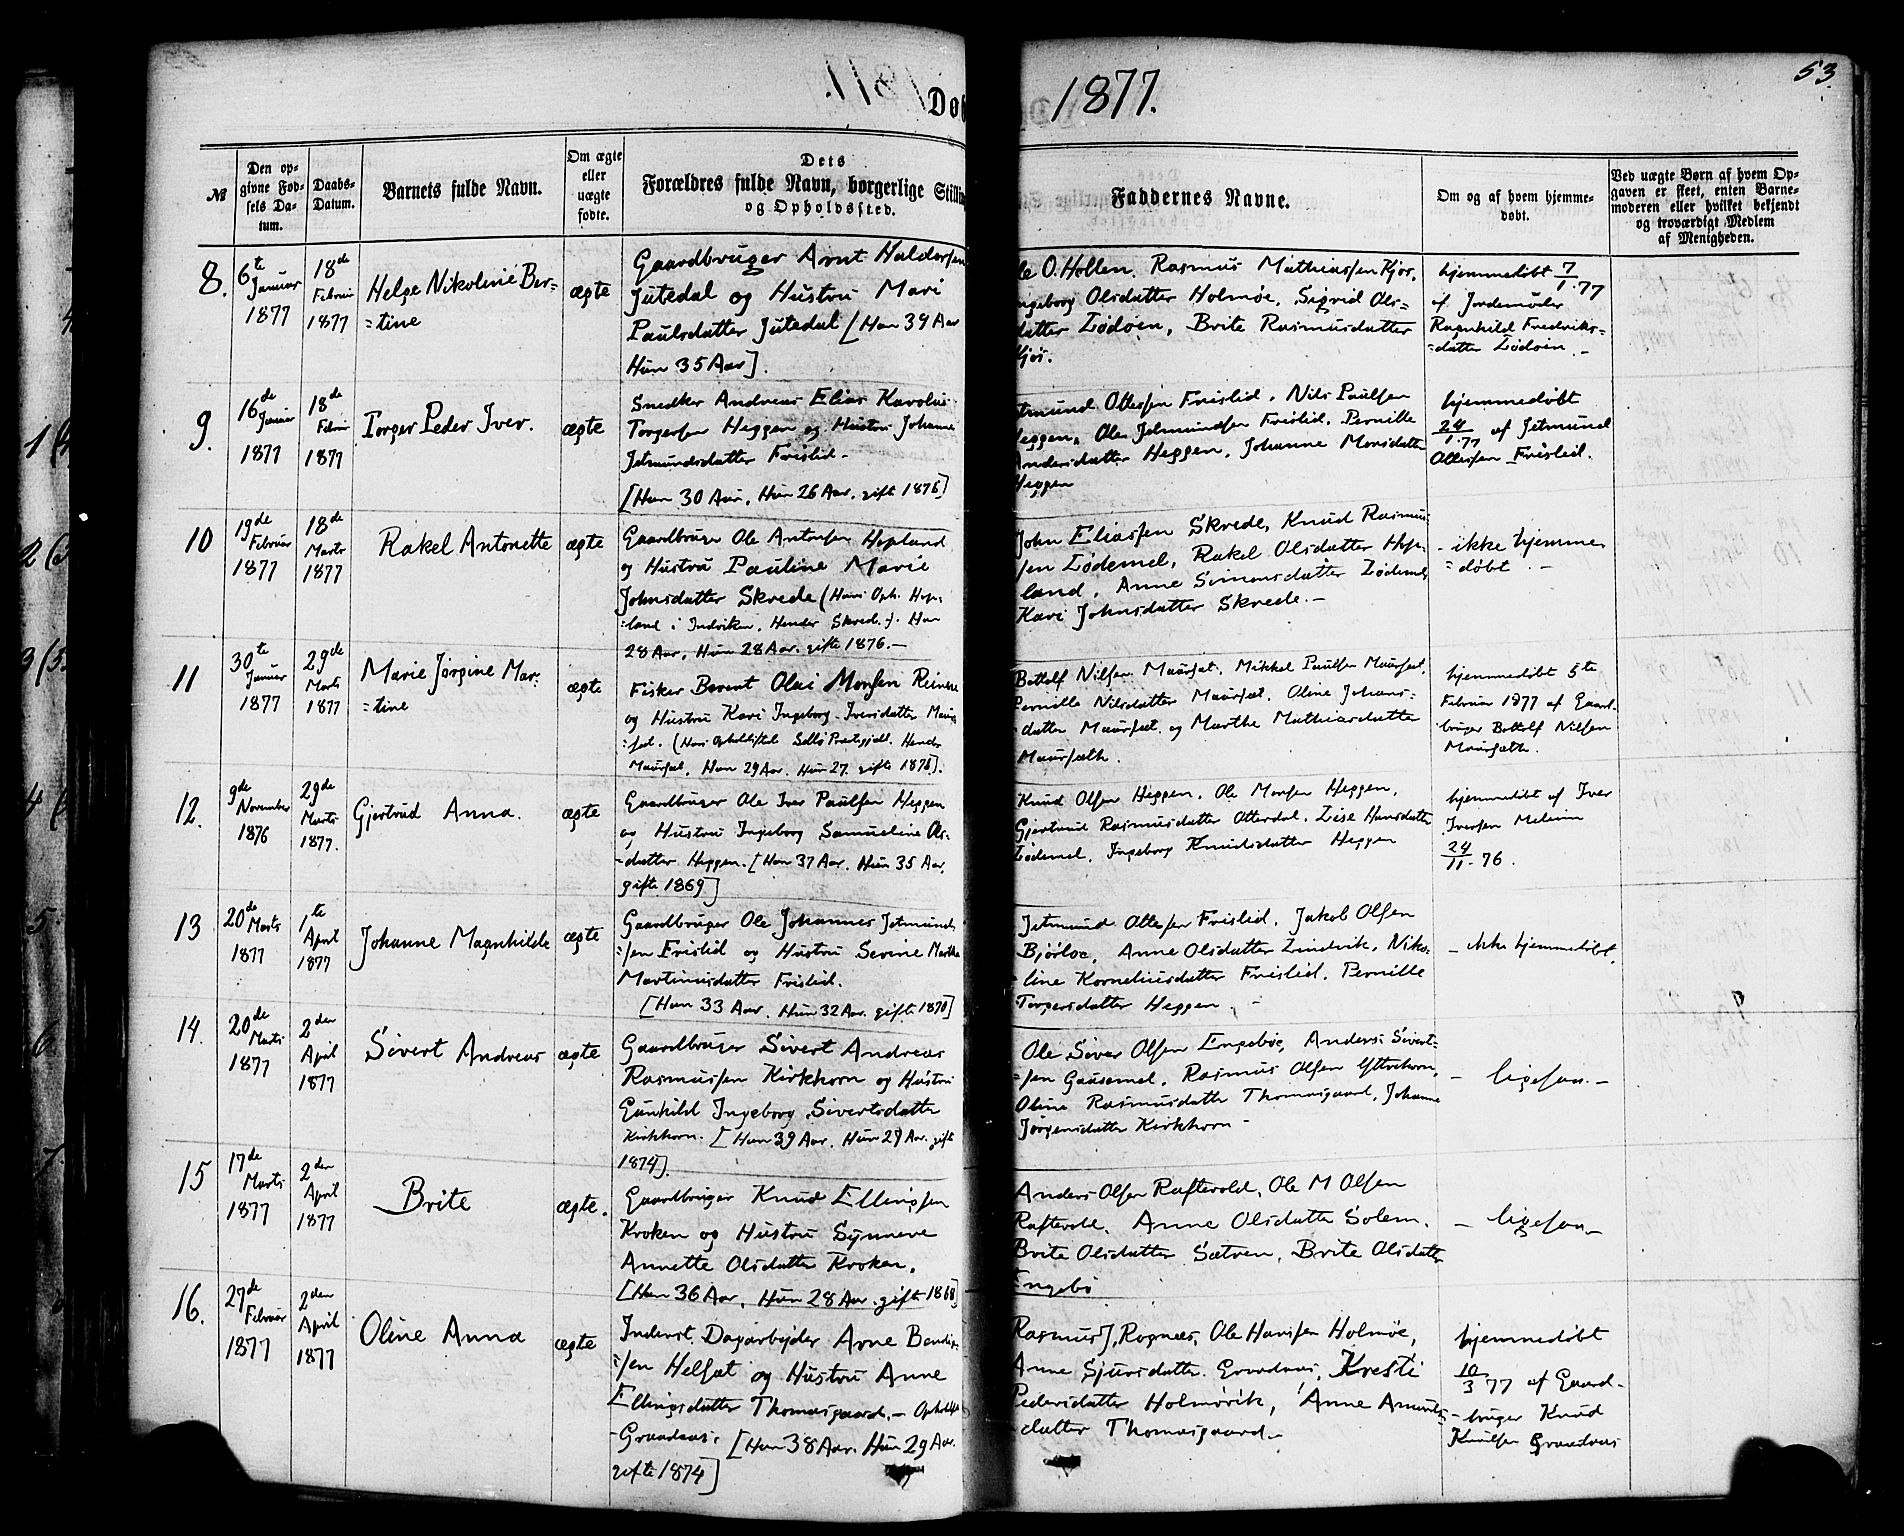 1877.
53.
Døb
№
Den op-
givne Fød-
sels Da-
tum.
Daabs-
Datum.
Barnets fulde Navn.
Om ægte
eller
uægte
fødte.
Dets
Forældres fulde Navn, borgerlige Stillin
og Opholdssted.
Faddernes Navne.
Om og af hvem hjemme-
døbt.
Ved uægte Børn af hvem Op-
gaven er skeet, enten Barne-
moderen eller hvilket bekjendt
og troværdigt Medlem
af Menigheden.
8.
6te
Januar
1877
18de
Februar
1877
Helge Nikoline Ber-
=tine
ægte
Gaardbruger Arnt Haldorsen
Jutedal og Hustru Mari
Paulsdatter Jutedal [Han 39 Aar
Hun 35 Aar].
le O. Hollen. Rasmus Mathiassen Kjøs.
ngeborg Olsdatter Holmøe. Sigrid Ols-
datter Lødøen, Brite Rasmusdatter
Kjøs.
hjemmedøbt 7/1.77
af Jordemoder
Ragnhild Fredriks-
=datter Lødøen.-
9.
16de
Januar
1877
18de
Febr
1877
Torger Peder Iver.
ægte
Snedker Andreas Elias Karolus
Torgersen Heggen og Hustru Johanne
Jetmundsdatter Frislid.
[Han 30 Aar, Hun 26 Aar. gift 1876]
etmund Ottesen Frislid. Nils Paulsen
Heggen. Ole Jetmundsen Frislid. Pernille
Andersdatter Heggen, Johanne Monsdatter
Heggen
hjemmedøbt
24/1.77 af Jetmund
Ottesen Frislid.
10
19de
Februar
1877
18de
Marts
1877
Rakel Antonette
ægte
Gaardbruger Ole Antonsen Hopland
og Hustru Pauline Marie
Johnsdatter Skrede (Hans Oph. Hop-
land i Indviken, Hendes Skrede.). Han
28 Aar, Hun 28 Aar. gifte 1876.-
John Eliassen Skrede, Knud Rasmus-
sen Lødemel, Rakel Olsdatter Hop-
land. Anne Simonsdatter Lødemel
Kari Johnsdatter Skrede.-
- ikke hjemme
=døbt.-
11
30te
Januar
1877
29de
Marts
1877
Marie Jørgine Mar-
=tine
ægte
Fisker Bernt Olai Monsen Reinene
og Hustru Kari Ingeborg Iversdatter Maur-
sæt. (Hans Opholdssted Sellø Præstegjeld. Hendes
Maursæt, Han 29 Aar. Hun 27. gifte 1876).
Bottolf Nilsen Maursæt. Mikkel Paulsen Maursæt.
Pernille Nilsdatter Maursæt. Oline Johans-
datter Maursæt og Marthe Mathiasdatter
Maursæth.
hjemmedøbt 5te
Februar 1877 af Gaard-
bruger Bottolf Nilsen
Maursæth.
12.
9de
November
1876
29de
Marts
1877.
Gjertrud Anna.
ægte
Gaardbruger Ole Iver Paulsen Heggen
og Hustru Ingeborg Samueline Ols-
=datter Heggen. [Han 37 Aar. Hun 35 Aar,
gifte 1869]
Knud Olsen Heggen. Ole Monsen Heggen.
Gjertrud Rasmusdatter Otterdal. Lise Hansdatter
Lødemel, Ingeborg Knudsdatter Heggen
hjemmedøbt af Iver
Iversen Melheim
24/11-76.
13
20de
Marts
1877
1te
April
1877
Johanne Magnhilde
ægte
Gaardbruger Ole Johannes Jetmund-
=sen Frislid og Hustru Sevine Marthe
Martinusdatter Frislid.
[Han 33 Aar. Hun 32 Aar. gifte 1870]
Jetmund Ottesen Frislid. Jakob Olsen
Bjørloe, Anne Olsdatter Lindvik, Niko-
=line Korneliusdatter Frislid. Pernille
Torgersdatter Heggen.-
- ikke hjemmedøbt.
14.
20de
Marts
1877
2den
April
1877
Sivert Andreas
ægte
Gaardbruger Sivert Andreas
Rasmussen Kirkhorn og Hustru
Gunhild Ingeborg Sivertsdatter
Kirkhorn. [Han 39 Aar. Hun 27 Aar. gift
1874].
Ole Siver Olsen Engebøe, Anders Sivert-
=sen Gausemel. Rasmus Olsen Ytrehorn,
Oline Rasmusdatter Thomasgaard, Johanne
Jørgensdatter Kirkhorn-
- ligesaa.-
15
17de
Marts
1877
2den
April
1877
Brite
ægte.
Gaardbruger Knud Ellingsen
Kroken og Hustru Synneve
Annette Olsdatter Kroken.
[Han 36 Aar, Hun 28 Aar. gifte 1868]
Anders Olsen Raftevold. Ole M Olsen
Raftevold. Anne Olsdatter Solem.
Brite Olsdatter Sætren, Brite Olsdatter
Engebø
- ligesaa-
16.
27de
Februar
1877
2den
April
1877
Oline Anna
ægte
Inderst Dagarbejder Arne Bendig-
=sen Helsæt og Hustru Anne
Ellingsdatter Thomasgaard.- Opholdst
-Graadnæs. [Han 38 Aar. Hun 29 Aar.
gifte 1874]
Rasmus J. Rognæs, Ole Hansen Holmøe,
Anne Sjursdatter Graadnæs, Kresti
Pedersdatter Holmørik, Anne Amunds-
-datter Thomasgaard.-
hjemmedøbt
10/3 77 af Gaard-
-bruger Knud
Knudsen Graadnæs